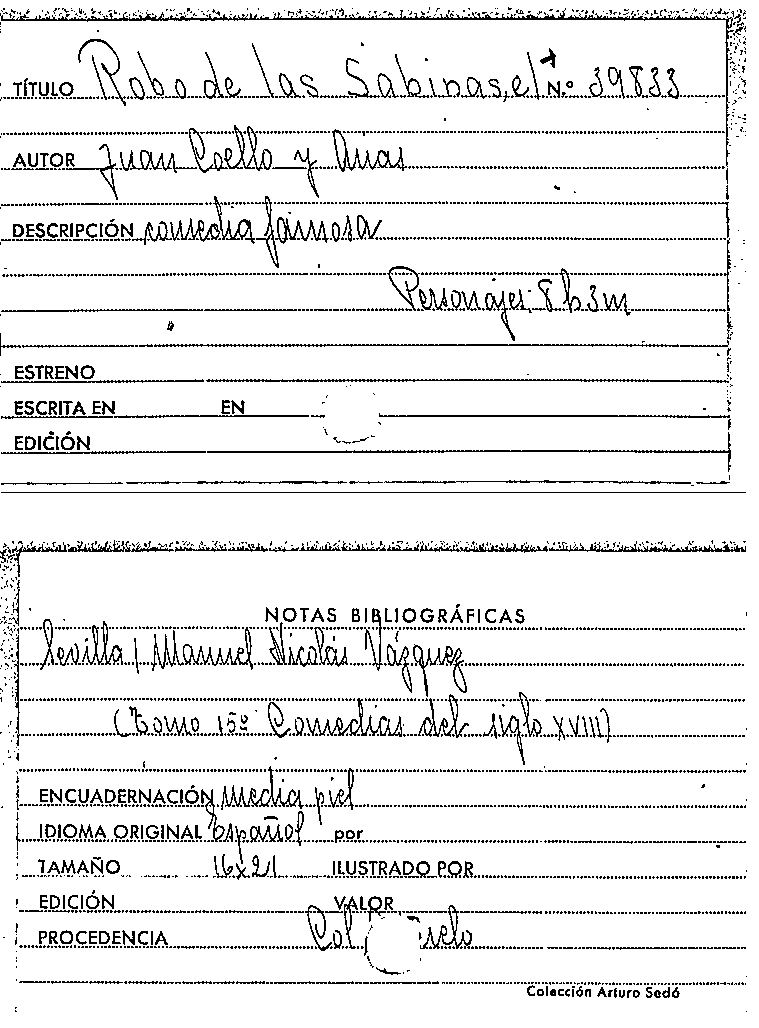 TÍTULO Robo de las Sabinas, el N.º 39833
AUTOR Juan Coello y Arias
DESCRIPCIÓN comedia famosa
Personajes: 8 h 3 m
ESTRENO
ESCRITA EN EN
EDICIÓN
NOTAS BIBLIOGRÁFICAS
Sevilla / Manuel Nicolás Vázquez
(Tomo 15º Comedias del siglo XVIII)
ENCUADERNACIÓN media piel
IDIOMA ORIGINAL Español por
TAMAÑO 16x21 ILUSTRADO POR
EDICIÓN VALOR
PROCEDENCIA Col
Colección Arturo Sedó